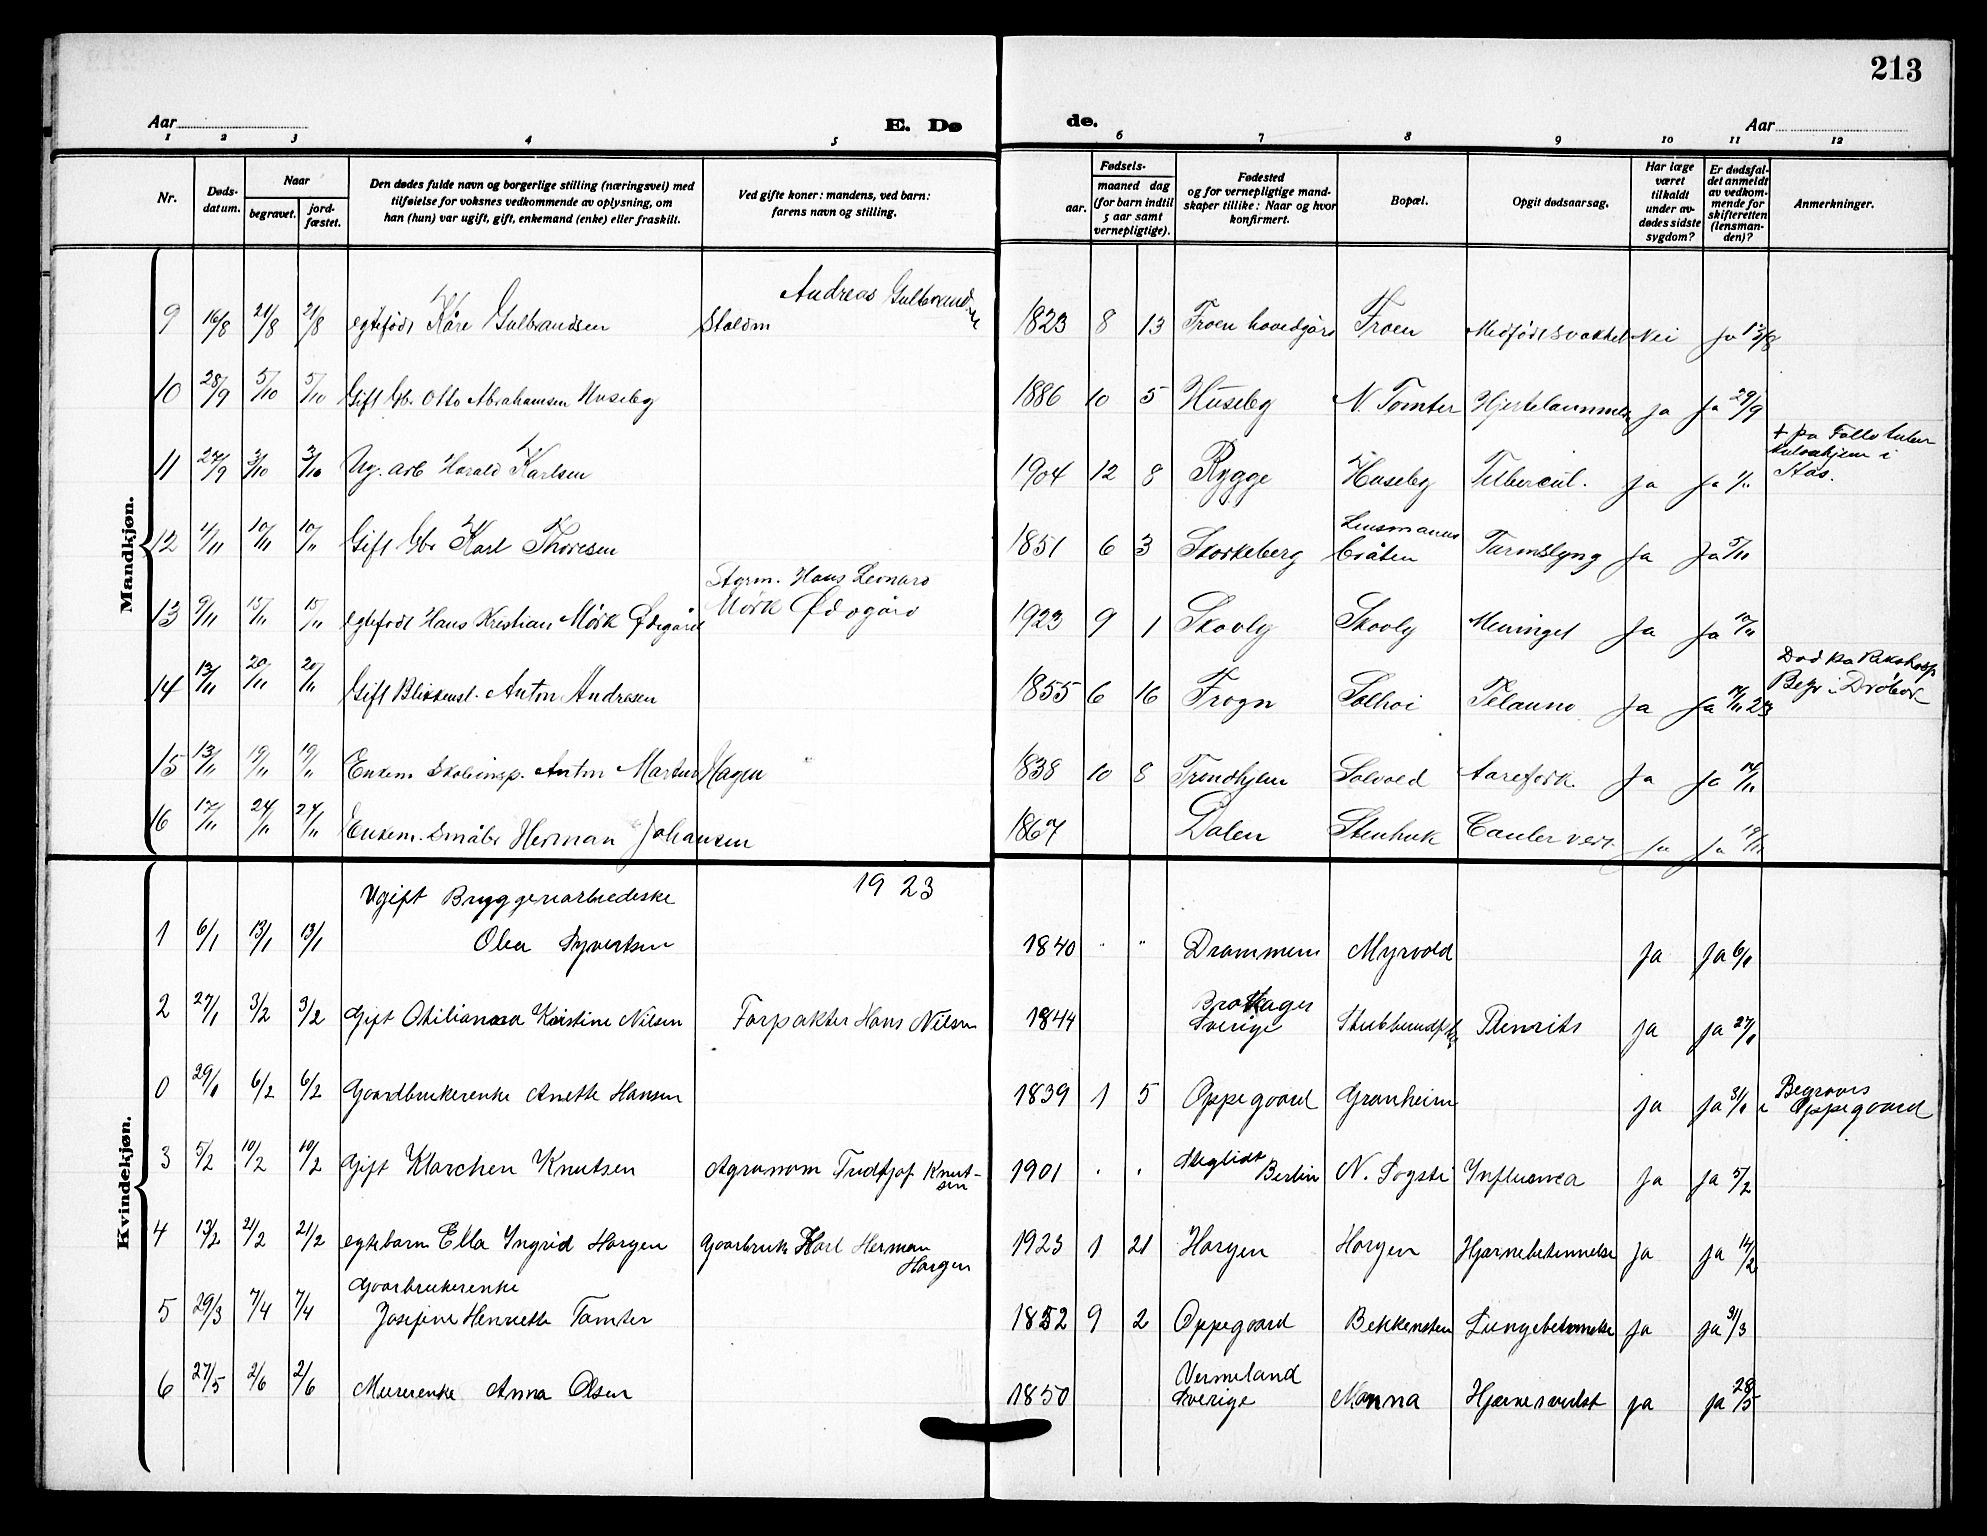 213
Aar
E. Dø
de.
Aar
1 2 3 4 5 6 7 8 9 10 11 12
Nr.
Døds-
datum.
Naar
begravet.
jord-
fæstet.
Den dødes fulde navn og borgerlige stilling (næringsvei) med
tilføielse for voksnes vedkommende av oplysning, om
han (hun) var ugift, gift, enkemand (enke) eller fraskilt.
Ved gifte koner: mandens, ved barn:
farens navn og stilling.
Fødsels-
aar.
maaned dag
(for barn indtil
5 aar samt
vernepligtige).
Fødested
og for vernepligtige mand-
skaper tillike: Naar og hvor
konfirmert.
Bopæl.
Opgit dødsaarsag.
Har læge
været
tilkaldt
under av-
dødes sidste
sygdom?
Er dødsfal-
det anmeldt
av vedkom-
mende for
skifteretten
(lensman-
den)?
Anmerkninger.
Mandkjøn.
Andreas Gulbrandsen
9 16/8 21/8 21/8 egtefødt Kåre Gulbrandsen Staldm 1823 8 13 Froen hovedgård Froen Medfødt svakhet Nei Ja 13/8
10 28/9 5/10 5/10 Gift Gb. Otto Abrahamsen Huseby 1886 10 5 Huseby N. Tomter Hjertelammelse Ja Ja 29/9
+ pa Follo tuber
kuloshjem i
11 27/9 3/10 3/10 Ug. arb Harald Karlsen 1904 12 8 Rygge Huseby Tubercul. Ja Ja Aas.
Lensmanns
12 4/11 10/11 10/11 Gift Gbr Karl Thoresen 1851 6 3 Skorkeberg bråten Tarmslyng Ja Ja 5/11
Agrm. Hans Leonard
13 9/11 15/11 15/11 egtefødt Hans Kristian Mørk Ødegård Mørk Ødegård 1923 9 1 Skovly Skovly Meningit Ja Ja 10/11
Død pa Rikshosp
14 13/11 20/11 20/11 Gift Blikkensl. Anton Andresen 1855 6 16 Frogn Solhøi Ja Ja 14/11 23 Begr i Drøbak
15 13/11 19/11 19/11 Enkem Skoleinsp. Anton Martin Hagen 1838 10 8 Trondhjem Solvold Aarefork. Ja Ja 14/11
16 17/11 24/11 24/11 Enkem. Småbr Herman Johansen 1867 Dalen Stenhuk Cancer ventr. Ja Ja 19/11
Kvindekjøn.
1923
Ugift Bryggeriarbeiderske
1 6/1 13/1 13/1 Olea Syvertsen 1840 " " Drammen Myrvold Ja Ja 6/1
2 27/1 3/2 3/2 Gift Otiliana Kristine Nilsen Forpakter Hans Nilsen 1844 Sverige Pleurits Ja Ja 27/1
0 29/1 6/2 6/2 Gaardbrukerenke Anette Hansen 1839 1 5 Oppegaard Granheim Ja Ja 31/1 Begraves
i Oppegaard
3 5/2 10/2 10/2 Gift Klärchen Knutsen Agronom Fridtjof Knut-
sen 1901 " " Steglidt Berlin N. Sogsti Influenca Ja Ja 5/2
4 13/2 21/2 21/2 egtebarn Ella Ingrid Horgen Gaarbruk Karl Herman
Horgen 1923 1 21 Horgen Horgen Hjernebetennelse Ja Ja 14/2
Gaarbrukerenke
5 29/3 7/4 7/4 Josefine Henriette Tomter 1852 9 2 Oppegaard Bekkensten Lungebetennelse Ja Ja 31/3
6 27/5 2/6 2/6 Murerenke Anna Olsen 1850 Vermeland
Sverige Nanna Hjernesvulst Ja Ja 28/5